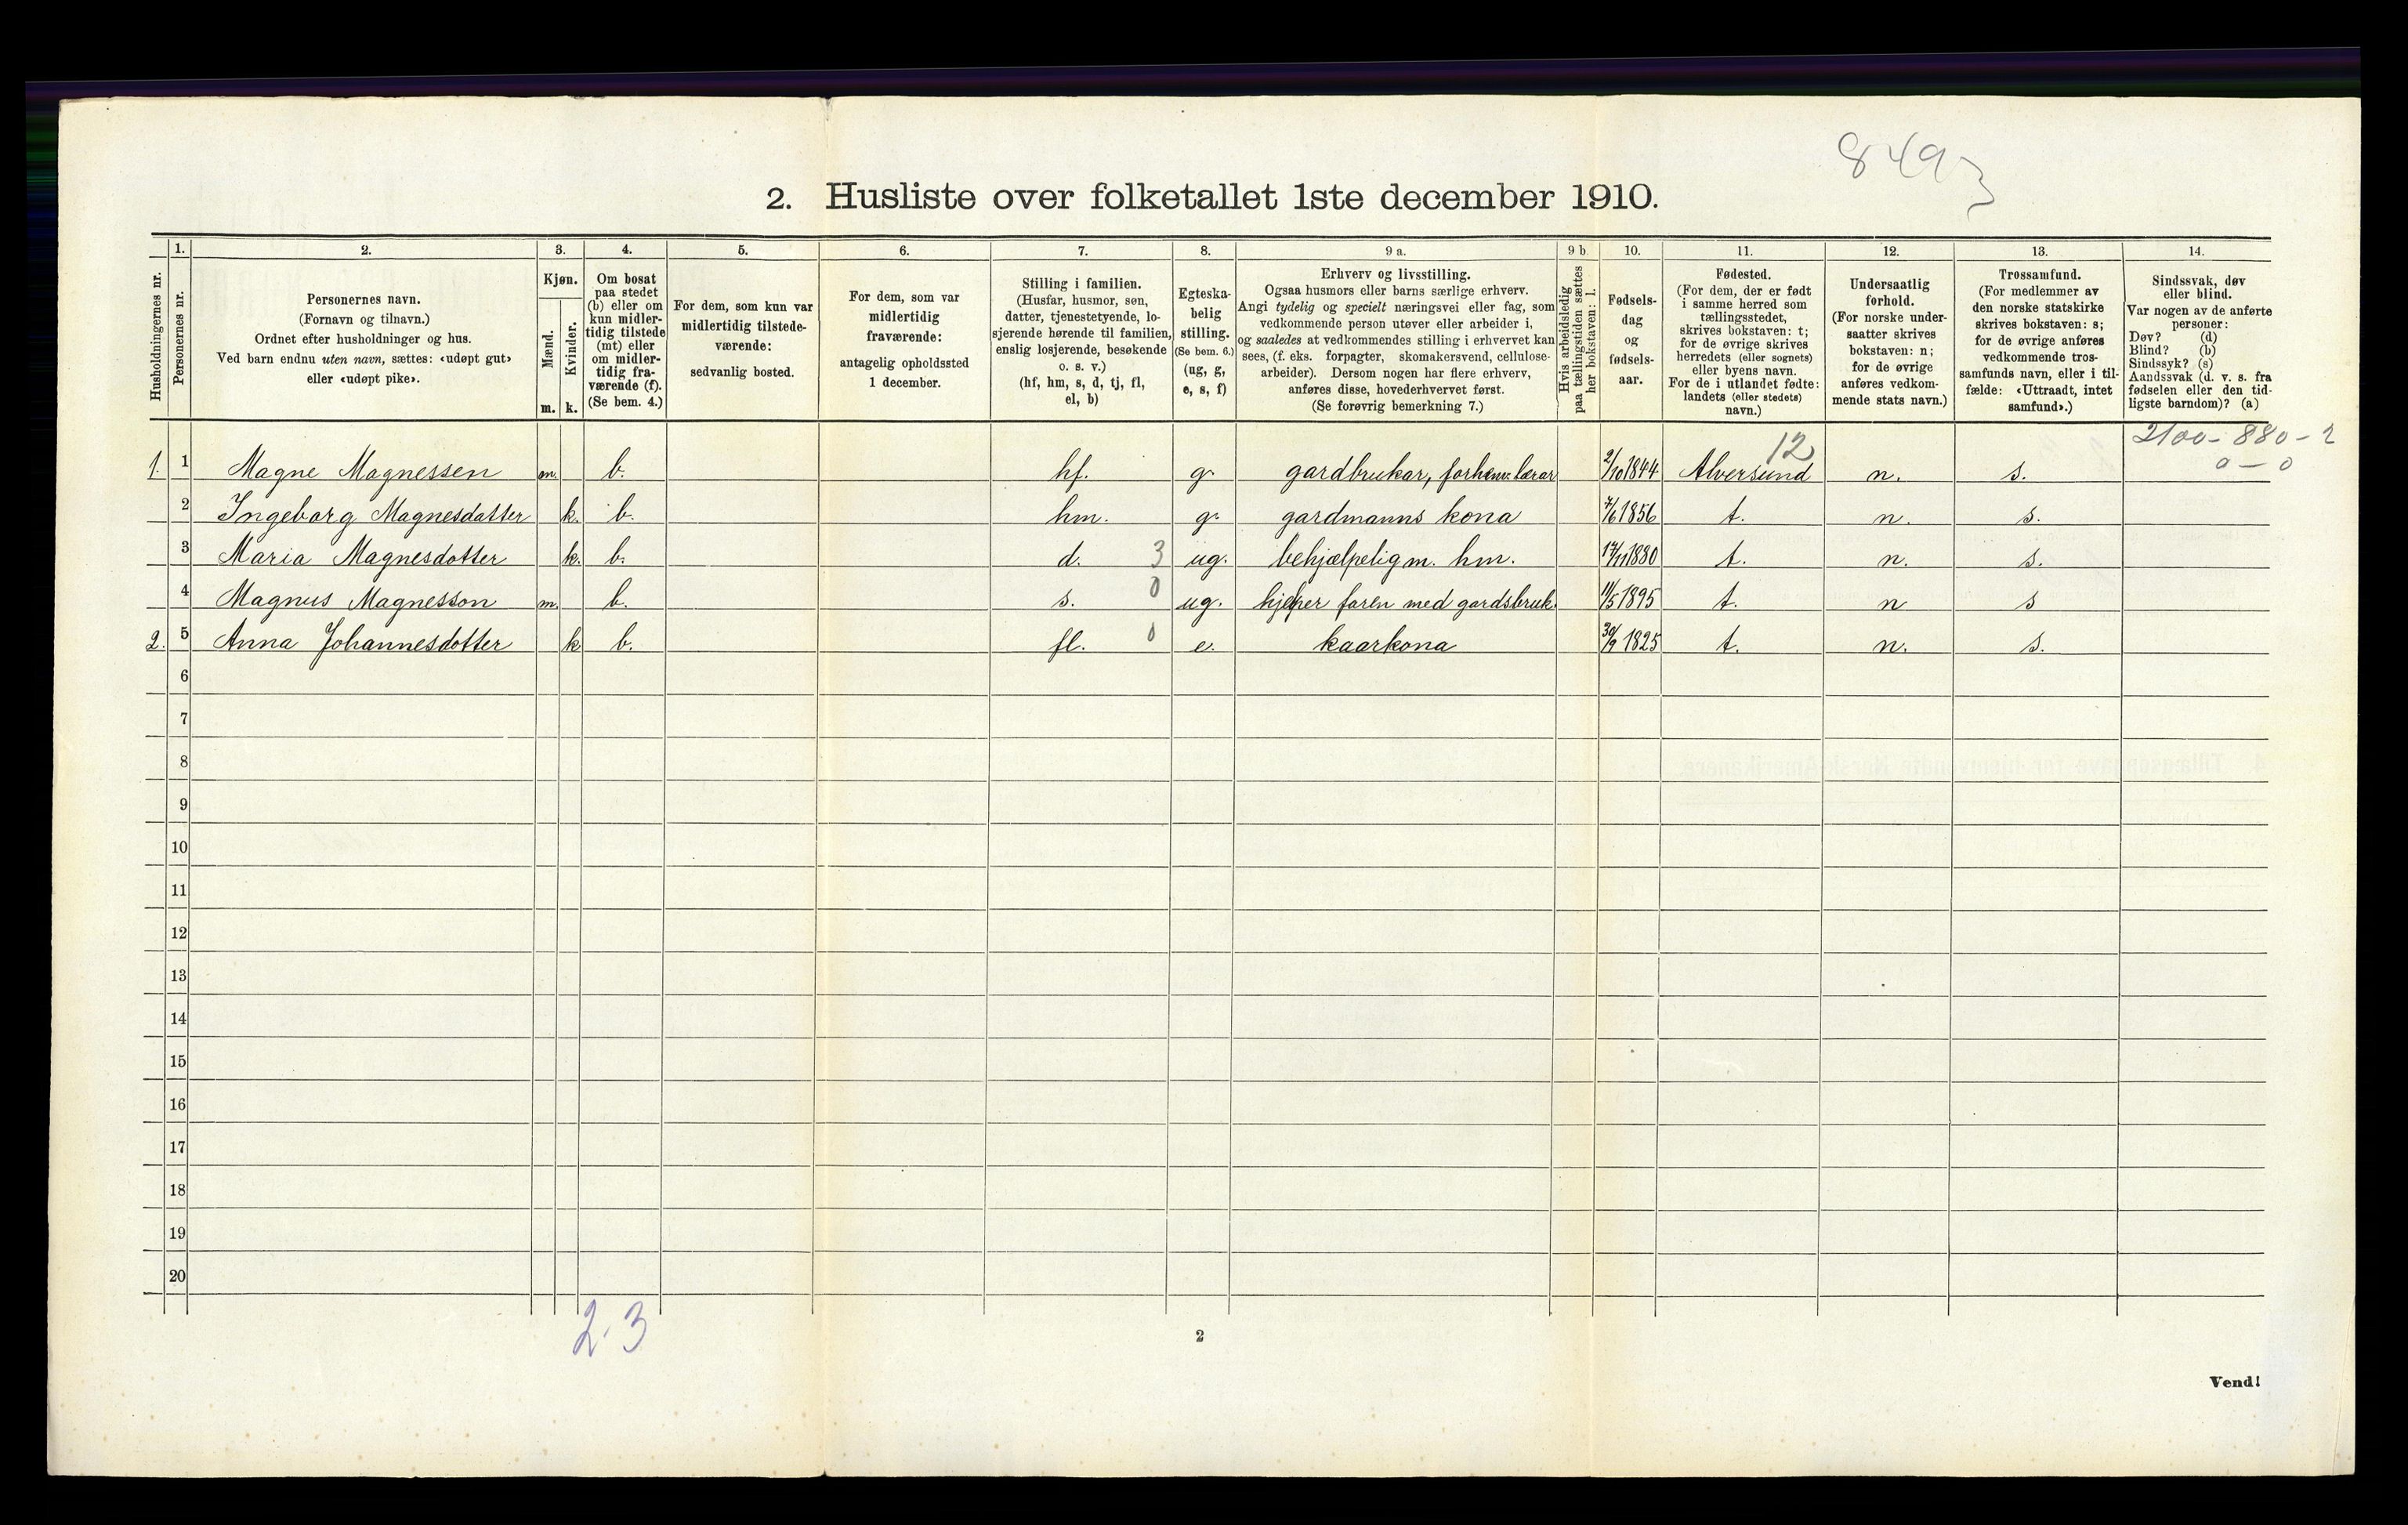 8493
2. Husliste over folketallet 1ste december 1910.
Husholdningernes nr.
1.
Personernes nr.
2.
Personernes navn.
(Fornavn og tilnavn.)
Ordnet efter husholdninger og hus.
Ved barn endnu uten navn, sættes: «udøpt gut»
eller «udøpt pike».
3.
Kjøn.
Mænd.
Kvinder.
m. k.
4.
Om bosat
paa stedet
(b) eller om
kun midler-
tidig tilstede
(mt) eller
om midler-
tidig fra-
værende (f).
(Se bem. 4.)
5.
For dem, som kun var
midlertidig tilstede-
værende:
sedvanlig bosted.
6.
For dem, som var
midlertidig
fraværende:
antagelig opholdssted
1 december.
7.
Stilling i familien.
(Husfar, husmor, søn,
datter, tjenestetyende, lo-
sjerende hørende til familien,
enslig losjerende, besøkende
o. s. v.)
(hf, hm, s, d, tj, fl,
el, b)
8.
Egteska-
belig
stilling.
(Se bem. 6.)
(ug, g,
e, s, f)
9 a.
Erhverv og livsstilling.
Ogsaa husmors eller barns særlige erhverv.
Angi tydelig og specielt næringsvei eller fag, som
vedkommende person utøver eller arbeider i,
og saaledes at vedkommendes stilling i erhvervet kan
sees, (f. eks. forpagter, skomakersvend, cellulose-
arbeider). Dersom nogen har flere erhverv,
anføres disse, hovederhvervet først.
(Se forøvrig bemerkning 7.)
9 b.
Hvis arbeidsledig
paa tællingstiden sættes
her bokstaven: l.
10.
Fødsels-
dag
og
fødsels-
aar.
11.
Fødested.
(For dem, der er født
i samme herred som
tællingsstedet,
skrives bokstaven: t;
for de øvrige skrives
herredets (eller sognets)
eller byens navn.
For de i utlandet fødte:
landets (eller stedets)
navn.)
12.
Undersaatlig
førhold.
(For norske under-
saatter skrives
bokstaven: n;
for de øvrige
anføres vedkom-
mende stats navn.)
13.
Trossamfund.
(For medlemmer av
den norske statskirke
skrives bokstaven: s;
for de øvrige anføres
vedkommende tros-
samfunds navn, eller i til-
fælde: «Uttraadt, intet
samfund».)
14.
Sindssvak, døv
eller blind.
Var nogen av de anførte
personer:
Døv? (d)
Blind? (b)
Sindssyk? (s)
Aandssvak (d. v. s. fra
fødselen eller den tid-
ligste barndom)? (a)
12
2100 - 880 - 2
0 - 0
1. 1 Magne Magnessen m. b. hf. g. gardbrukar, forhenv. lærar 2/10 1844 Alversund n. s.
2 Ingeborg Magnesdatter k. b. hm. g. gardmanns kona 7/6 1856 t. n. s.
3 Maria Magnesdotter k. b. d. 3 ug. behjælpelig m. hm. 17/11 1880 t. n. s.
4 Magnus Magnesson m. b. s. 0 ug. hjelper faren med gardsbruk. 11/5 1895 t. n s
2. 5 Anna Johannesdotter k b. fl. 0 e. kaarkona 30/9 1825 t. n. s.
6
7
8
9
10
11
12
13
14
15
16
17
18
19
20
2. 3
2
Vend!